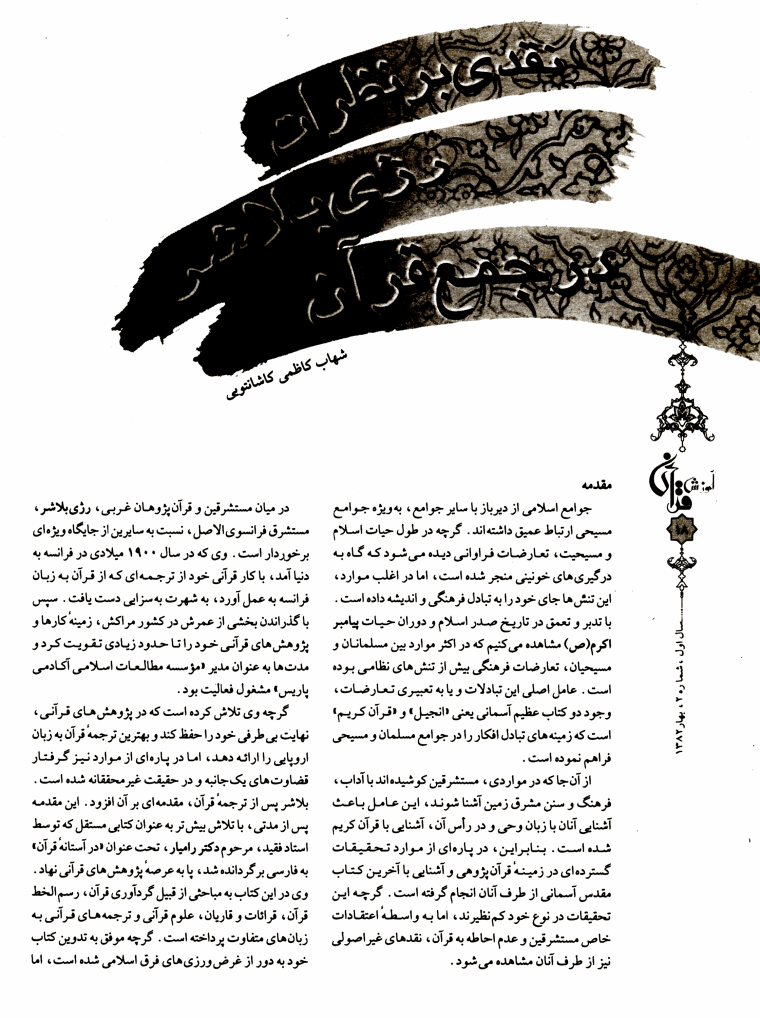 نقدی بر نظرات
رژی بلاشر
در جمع قرآن
شهاب کاظمی کاشانتویی
مقدمه
جوامع اسلامی از دیرباز با سایر جوامع، به‌ویژه جوامع
مسیحی ارتباط عمیق داشته‌اند. گرچه در طول حیات اسلام
و مسیحیت، تعارضات فراوانی دیده می‌شود که گاه به
درگیری‌های خونینی منجر شده است، اما در اغلب موارد،
این تنش‌ها جای خود را به تبادل فرهنگی و اندیشه داده است.
با تدبر و تعمق در تاریخ صدر اسلام و دوران حیات پیامبر
اکرم(ص) مشاهده می‌کنیم که در اکثر موارد بین مسلمانان و
مسیحیان، تعارضات فرهنگی بیش از تنش‌های نظامی بوده
است. عامل اصلی این تبادلات و یا به تعبیری تعارضات،
وجود دو کتاب عظیم آسمانی یعنی «انجیل» و «قرآن کریم»
است که زمینه‌های تبادل افکار را در جوامع مسلمان و مسیحی
فراهم نموده است.
از آن‌جا که در مواردی، مستشرقین کوشیده‌اند با آداب،
فرهنگ و سنن مشرق زمین آشنا شوند، این عامل باعث
آشنایی آنان با زبان وحی و در رأس آن، آشنایی با قرآن کریم
شده است. بنابراین، در پاره‌ای از موارد تحقیقات
گسترده‌ای در زمینهٔ قرآن‌پژوهی و آشنایی با آخرین کتاب
مقدس آسمانی از طرف آنان انجام گرفته است. گرچه این
تحقیقات در نوع خود کم‌نظیرند، اما به واسطهٔ اعتقادات
خاص مستشرقین و عدم احاطه به قرآن، نقدهای غیراصولی
نیز از طرف آنان مشاهده می‌شود.
در میان مستشرقین و قرآن‌پژوهان غربی، رژی‌بلاشر،
مستشرق فرانسوی‌الاصل، نسبت به سایرین از جایگاه ویژه‌ای
برخوردار است. وی که در سال ۱۹۰۰ میلادی در فرانسه به
دنیا آمد، با کار قرآنی خود از ترجمه‌ای که از قرآن به زبان
فرانسه به عمل آورد، به شهرت به‌سزایی دست یافت. سپس
با گذراندن بخشی از عمرش در کشور مراکش، زمینهٔ کارها و
پژوهش‌های قرآنی خود را تا حدود زیادی تقویت کرد و
مدت‌ها به عنوان مدیر «مؤسسه مطالعات اسلامی آکادمی
پاریس» مشغول فعالیت بود.
گرچه وی تلاش کرده است که در پژوهش‌های قرآنی،
نهایت بی‌طرفی خود را حفظ کند و بهترین ترجمهٔ قرآن به زبان
اروپایی را ارائه دهد، اما در پاره‌ای از موارد نیز گرفتار
قضاوت‌های یک‌جانبه و در حقیقت غیرمحققانه شده است.
بلاشر پس از ترجمهٔ قرآن، مقدمه‌ای بر آن افزود. این مقدمه
پس از مدتی، با تلاش بیش‌تر به عنوان کتابی مستقل که توسط
استاد فقید، مرحوم دکتر رامیار، تحت عنوان «در آستانهٔ قرآن»
به فارسی برگردانده شد، پا به عرصهٔ پژوهش‌های قرآنی نهاد.
وی در این کتاب به مباحثی از قبیل گردآوری قرآن، رسم‌الخط
قرآن، قرائات و قاریان، علوم قرآنی و ترجمه‌های قرآنی به
زبان‌های متفاوت پرداخته است. گرچه موفق به تدوین کتاب
خود به دور از غرض‌ورزی‌های فرق اسلامی شده است، اما
آموزش قرآن
۱۸
سال اول، شماره ۲، بهار ۱۳۸۲